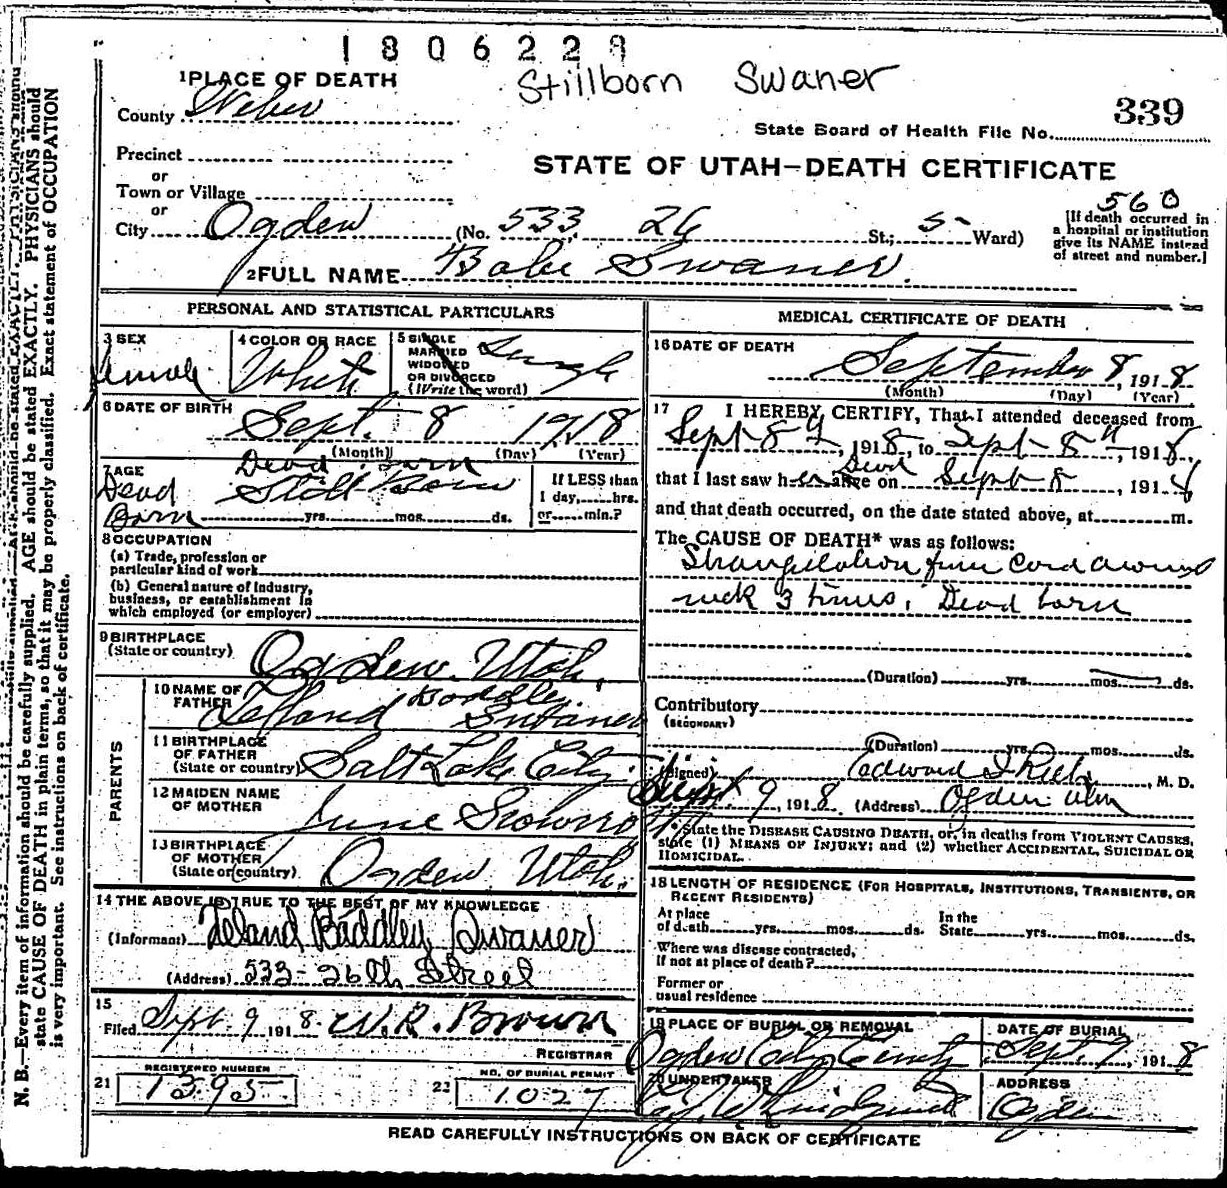 1806228
Stillborn Swaner
1 PLACE OF DEATH
County Weber
339
State Board of Health File No.
Precinct
or
STATE OF UTAH—DEATH CERTIFICATE
Town or Village
or
560
City Ogden (No. 533 26 St.; 5 Ward)
[If death occurred in a hospital or institution give its NAME instead of street and number.]
2 FULL NAME Babe Swaner
PERSONAL AND STATISTICAL PARTICULARS
3 SEX
Female
4 COLOR OR RACE
White
5 SINGLE
MARRIED
WIDOWED
OR DIVORCED
(Write the word)
Single
6 DATE OF BIRTH
Sept. 8 1918
(Month) (Day) (Year)
7 AGE
Dead Born
Dead Born
Still Born
yrs. mos. ds.
If LESS than
1 day, hrs.
or min.?
8 OCCUPATION
(a) Trade, profession or
particular kind of work
(b) General nature of industry,
business, or establishment in
which employed (or employer)
9 BIRTHPLACE
(State or country)
Ogden Utah.
PARENTS
10 NAME OF
FATHER
Leland Baddley Swaner
11 BIRTHPLACE
OF FATHER
(State or country)
Salt Lake City
12 MAIDEN NAME
OF MOTHER
June
13 BIRTHPLACE
OF MOTHER
(State or country)
Ogden Utah.
14 THE ABOVE IS TRUE TO THE BEST OF MY KNOWLEDGE
(Informant) Leland Baddley Swaner
(Address) 533 - 26th Street
15
Filed Sept. 9 1918 W. R. Brown
REGISTRAR
REGISTERED NUMBER
21 1395
NO. OF BURIAL PERMIT
22 1027
MEDICAL CERTIFICATE OF DEATH
16 DATE OF DEATH
September 8, 1918
(Month) (Day) (Year)
17 I HEREBY CERTIFY, That I attended deceased from
Sept 8th, 1918, to Sept 8th, 1918,
that I last saw her alive Dead on Sept 8, 1918
and that death occurred, on the date stated above, at m.
The CAUSE OF DEATH* was as follows:
Strangulation from cord around
neck 3 times. Dead born
(Duration) yrs. mos. ds.
Contributory
(SECONDARY)
(Duration) yrs. mos. ds.
(Signed) Edward I Rich, M. D.
Sept 9, 1918 (Address) Ogden Utah
* State the DISEASE CAUSING DEATH, or, in deaths from VIOLENT CAUSES,
state (1) MEANS OF INJURY; and (2) whether ACCIDENTAL, SUICIDAL OR
HOMICIDAL.
18 LENGTH OF RESIDENCE (FOR HOSPITALS, INSTITUTIONS, TRANSIENTS, OR
RECENT RESIDENTS)
At place
of death yrs. mos. ds.
In the
State yrs. mos. ds.
Where was disease contracted,
if not at place of death?
Former or
usual residence
19 PLACE OF BURIAL OR REMOVAL
Ogden City
DATE OF BURIAL
Sept. 9, 1918
20 UNDERTAKER
ADDRESS
Ogden
READ CAREFULLY INSTRUCTIONS ON BACK OF CERTIFICATE
N. B.—Every item of information should be carefully supplied. AGE should be stated EXACTLY. PHYSICIANS should
state CAUSE OF DEATH in plain terms, so that it may be properly classified. Exact statement of OCCUPATION
is very important. See instructions on back of certificate.